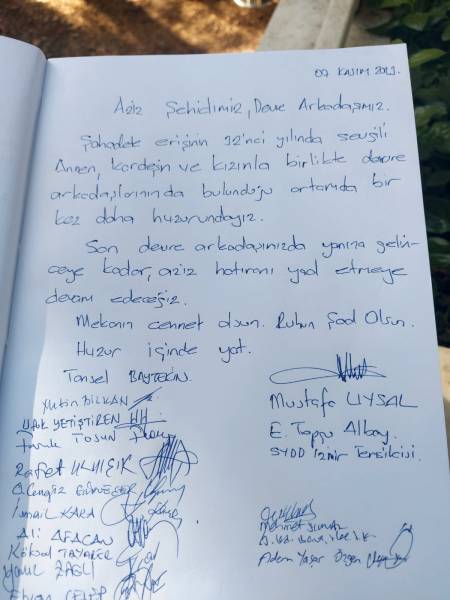 07 KASIM 2021.
Aziz Şehidimiz, Devre Arkadaşımız.
Şahadete erişinin 32'nci yılında sevgili
Annen, kardeşin ve kızınla birlikte devre
arkadaşlarınında bulunduğu ortamda bir
kez daha huzurundayız.
Son devre arkadaşınızda yanına gelin-
ceye kadar, aziz hatıranı yad etmeye
devam edeceğiz.
Mekanın cennet olsun. Ruhun Şad Olsun.
Huzur içinde yat.
Tansel BAYTEKİN.
Metin BİLKAN
Ufuk YETİŞTİREN
Faruk Tosun
Rafet ULUIŞIK
İsmail KARA
Ali AFACAN
Köksal
Mustafa UYSAL
E. Topçu Albay.
İzmir Temsilcisi.
Mehmet
Adem Yaşar